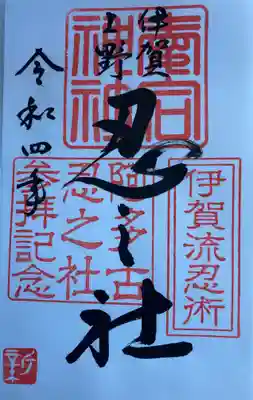 伊賀
上野
忍之社
令和四年
伊賀流忍術
阿多古
忍之社
参拝記念